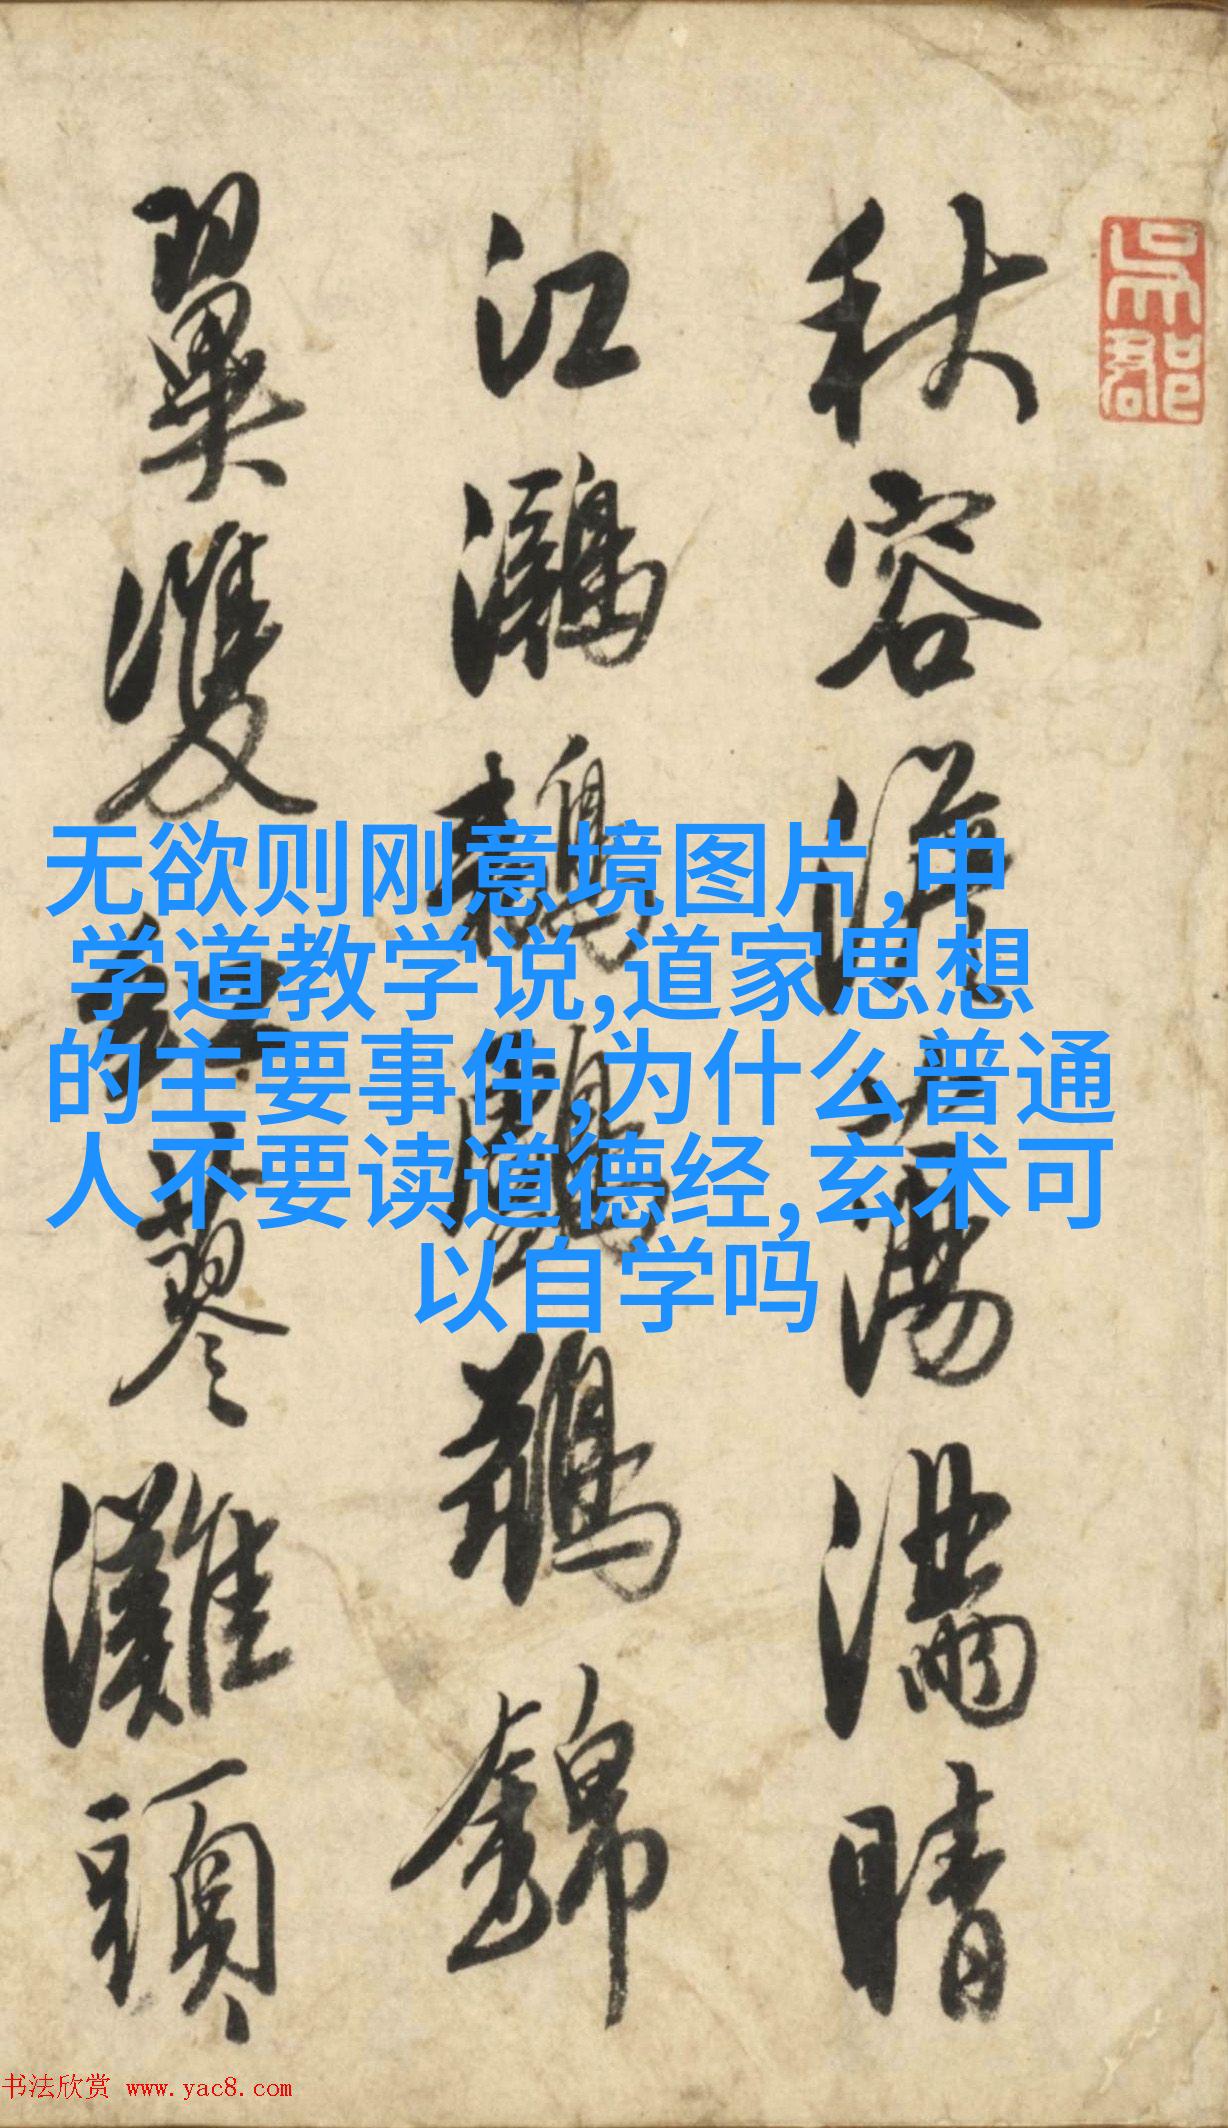 吳郡
秋容蕩滿晴
江鸂鶒鸕鷀錦
翼雙紅蓼灘頭
无欲则刚意境图片,中
学道教学说,道家思想
的主要事件,为什么普通
人不要读道德经,玄术可
以自学吗
书法欣赏 www.yac8.com